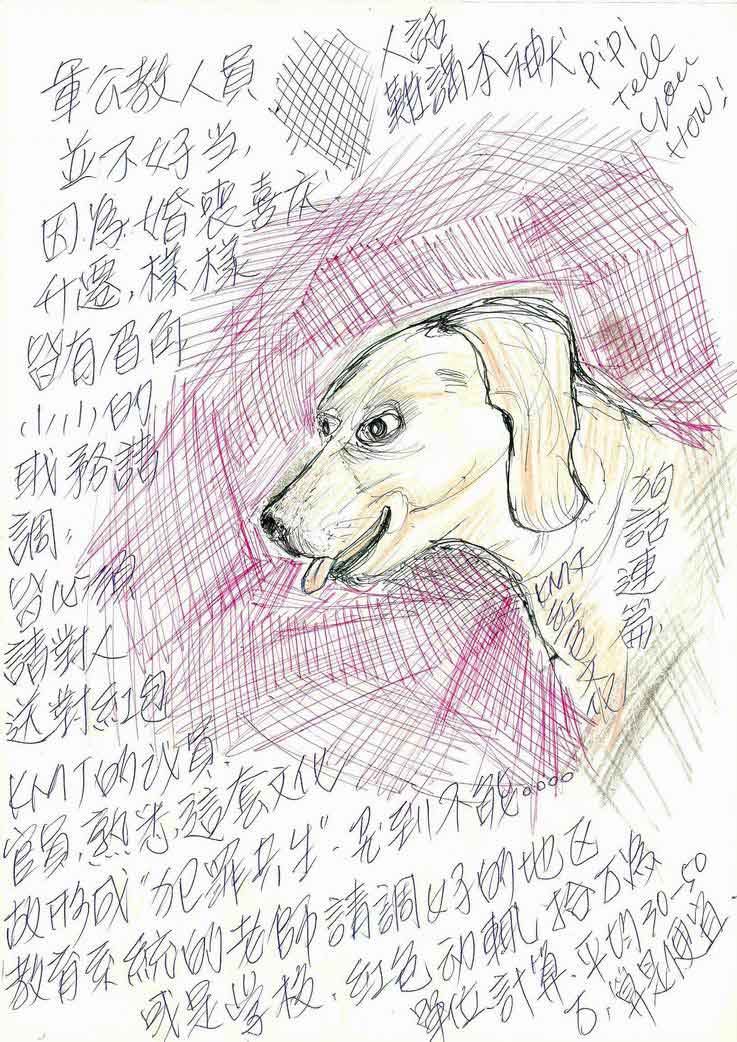 人話
難講本神犬
pipi
tell
you
HOW!
軍公教人員
並不好当,
因為婚喪喜庆.
升遷,樣樣
皆有眉角
小小的
职務請
調,
皆必須
請對人
送對紅包
KMT的议員.
官員,熟悉,這套文化
故形成"犯罪共生".見到不能....
教育系統的老師請調好的地区
或是学校.紅包动輒 拾万為
單位計算.平均30-50
万,算是便宜
狗話連篇.
KMT
紅包文化